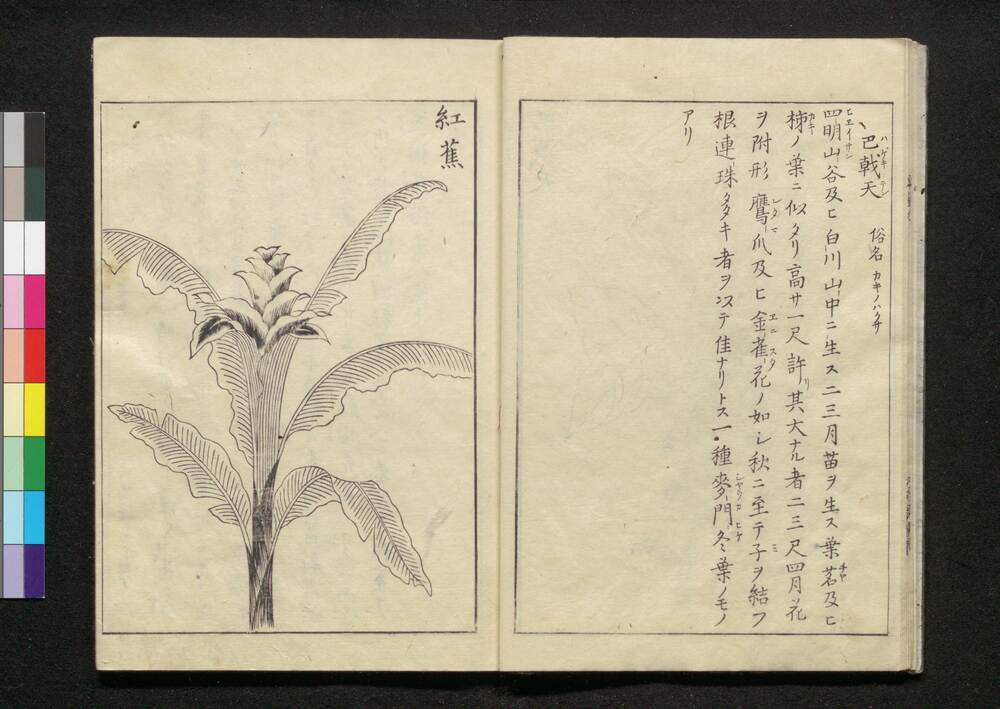 巴戟天 俗名 カキノハクサ
四明山谷及ヒ白川山中ニ生ス二三月苗ヲ生ス葉茗及ヒ
柿ノ葉ニ似タリ高サ一尺許リ其大ナル者二三尺四月花
ヲ附形鷹爪及ヒ金雀花ノ如シ秋ニ至テ子ヲ結フ
根連珠多キ者ヲ以テ佳ナリトス一種麥門冬葉ノモノ
アリ
紅蕉